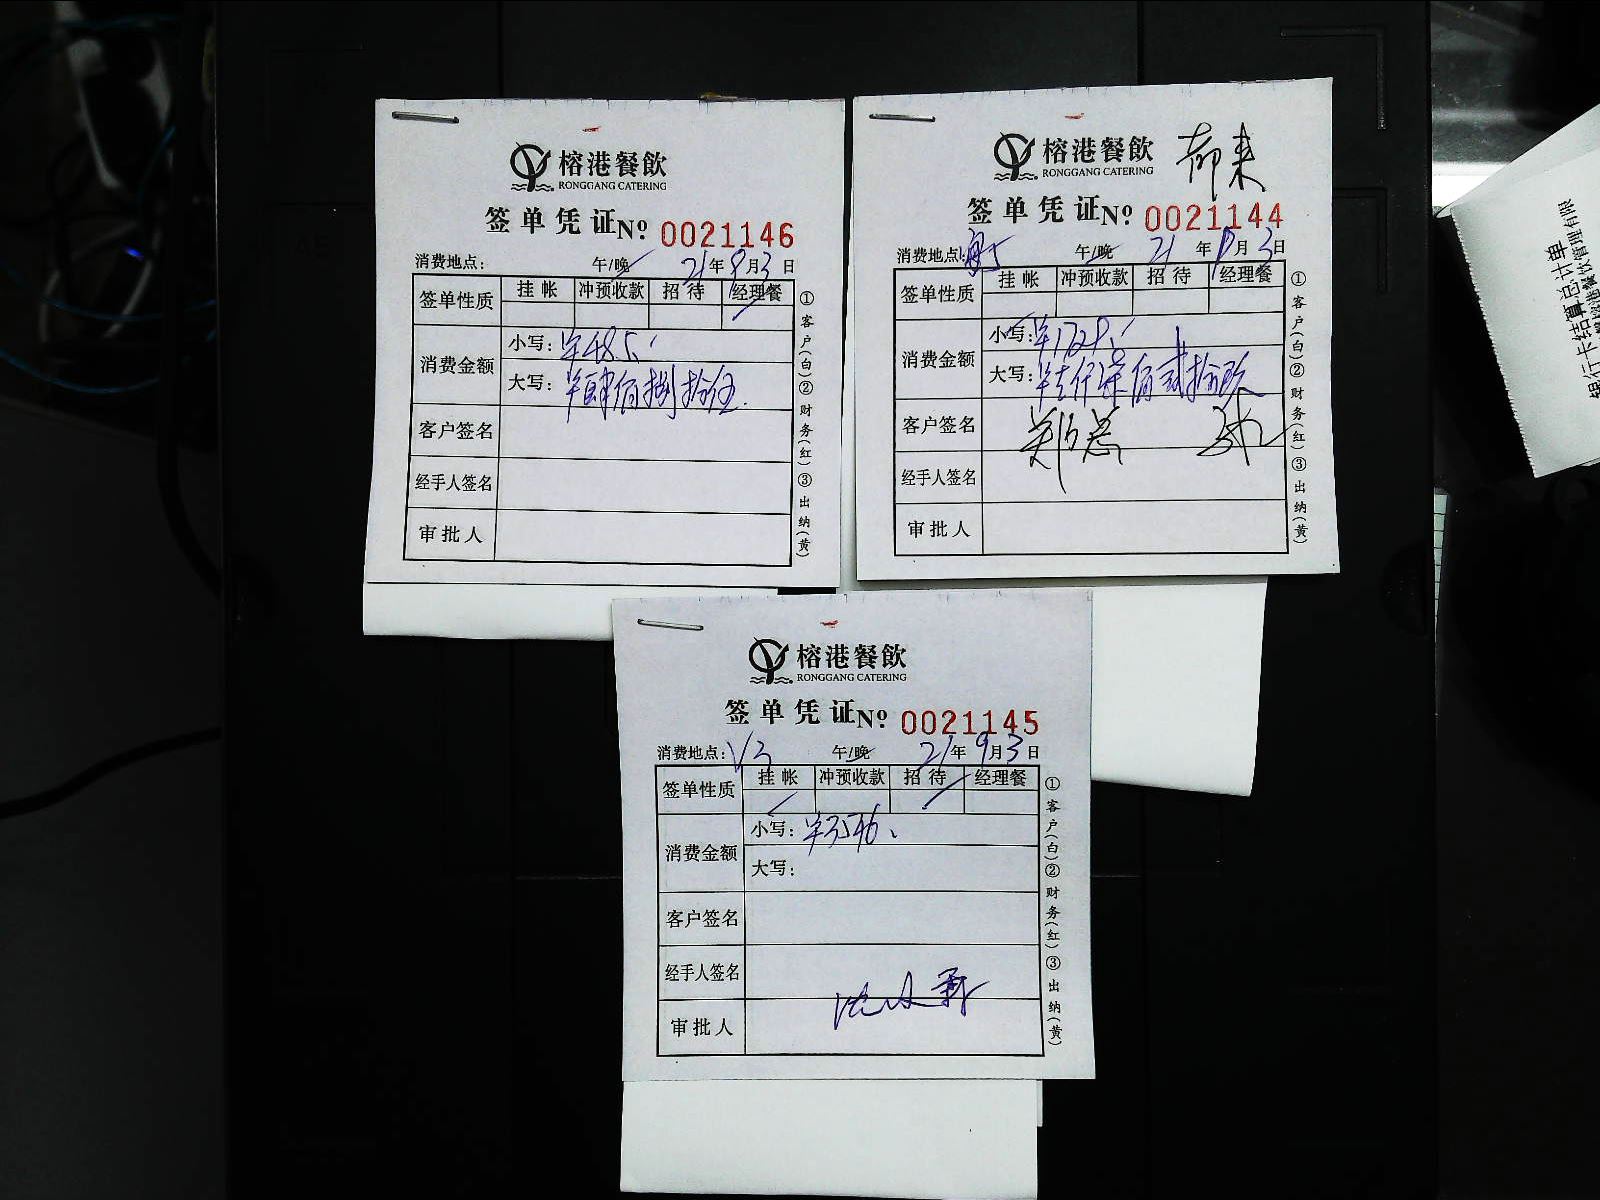 榕港餐飲
RONGGANG CATERING
签单凭证 Nº 0021146
消费地点: 午/晚 21年9月3日
签单性质 挂帐 冲预收款 招待 经理餐
消费金额
小写: ¥485.
大写: ¥肆佰捌拾伍
客户签名
经手人签名
审批人
①客户(白)②财务(红)③出纳(黄)
榕港餐飲
RONGGANG CATERING
签单凭证 Nº 0021144
消费地点: 午/晚 21年9月3日
签单性质 挂帐 冲预收款 招待 经理餐
消费金额
小写: ¥1729.
大写: ¥壹仟柒佰贰拾玖
客户签名
经手人签名
审批人
①客户(白)②财务(红)③出纳(黄)
榕港餐飲
RONGGANG CATERING
签单凭证 Nº 0021145
消费地点: V3 午/晚 21年9月3日
签单性质 挂帐 冲预收款 招待 经理餐
消费金额
小写:
大写:
客户签名
经手人签名
审批人
①客户(白)②财务(红)③出纳(黄)
银行卡结算总计单
榕港餐饮管理有限